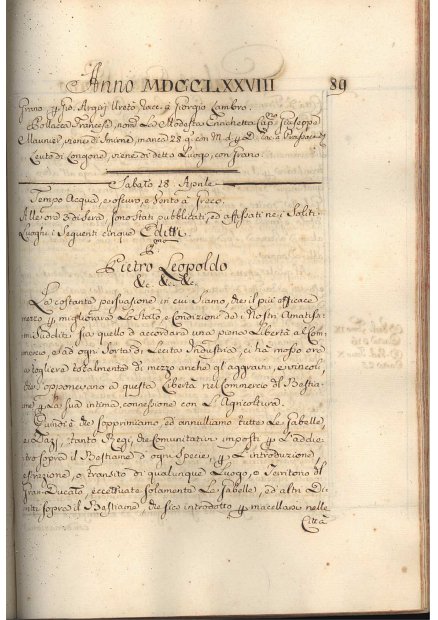 Anno MDCCLXXVIII
89
Grano, p Gio. Argiri Greto Racc. a Giorgio Lambro.
Bollacca Francese, nom. La Modesta Enrichetta Cap.no Giuseppe
Maunier, viene di Smirne, manca 28 g. con M. d. g. D. rac. a
Ceuto di Longone, viene di detto Luogo, con Grano.
Sabato 28. Aprile
Tempo Acqua, e oscuro, e Vento a Greco.
Alle ore 3 di Sera, sono stati pubblicati, ed affissati ne i Soliti
Luoghi i Seguenti cinque Editti
P.mo
Pietro Leopoldo
&c. &c. &c.
La costante persuasione in cui Siamo, che il più efficace
mezzo p migliorare Lo Stato, e Condizione de i Nostri Amatissi-
mi Sudditi sia quello d'accordare una piena Libertà al Com-
mercio, e ad ogni Sorta di Lecita Industria, ci ha mosso ora
a togliere totalmente di mezzo anche gl'aggravi, e vincoli,
che s'opponevano a questa Libertà nel Commercio del Bestia-
me p la sua intima connessione con L'Agricoltura.
Quindi è che Sopprimiamo, ed annulliamo tutte Le Gabelle,
e Dazj, tanto Regi, che Comunitativi imposti p L'addie-
tro sopra il Bestiame d'ogni Specie, p L'introduzione,
estrazione, o transito di qualunque Luogo, o Territorio del
Gran-Ducato, eccettuate solamente Le Gabelle, ed altri Di-
ritti sopra il Bestiame, che sia introdotto p macellarsi nelle
Città